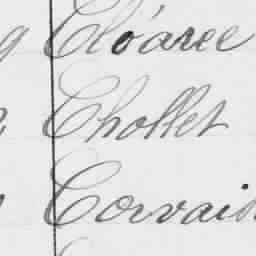 Cloarec
Chollet
Corvais